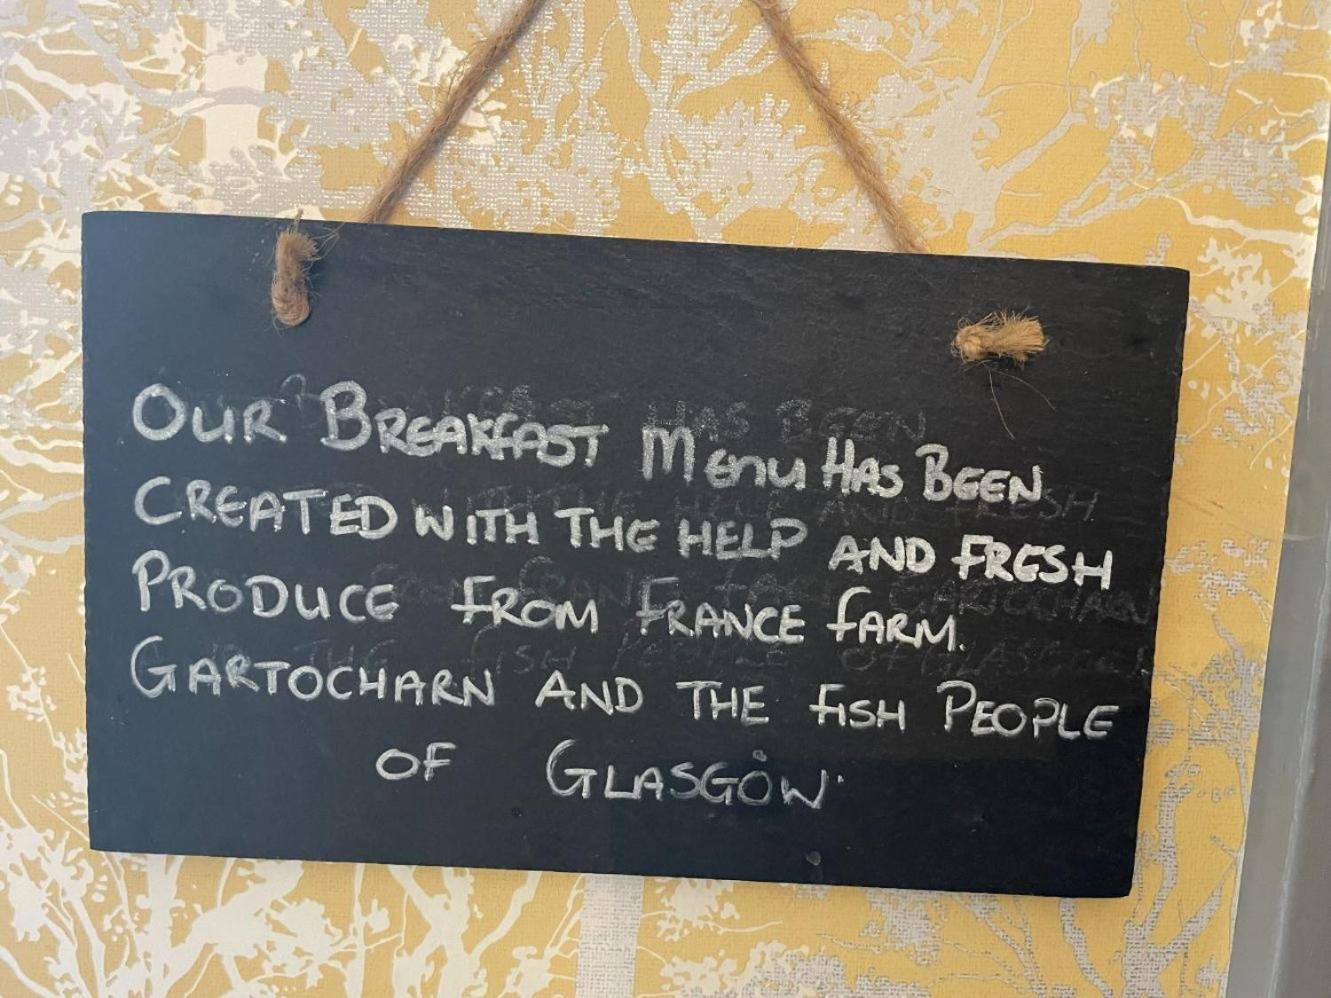 OUR BREAKFAST MENU HAS BEEN
CREATED WITH THE HELP AND FRESH
PRODUCE FROM FRANCE FARM.
GARTOCHARN AND THE FISH PEOPLE
OF GLASGOW